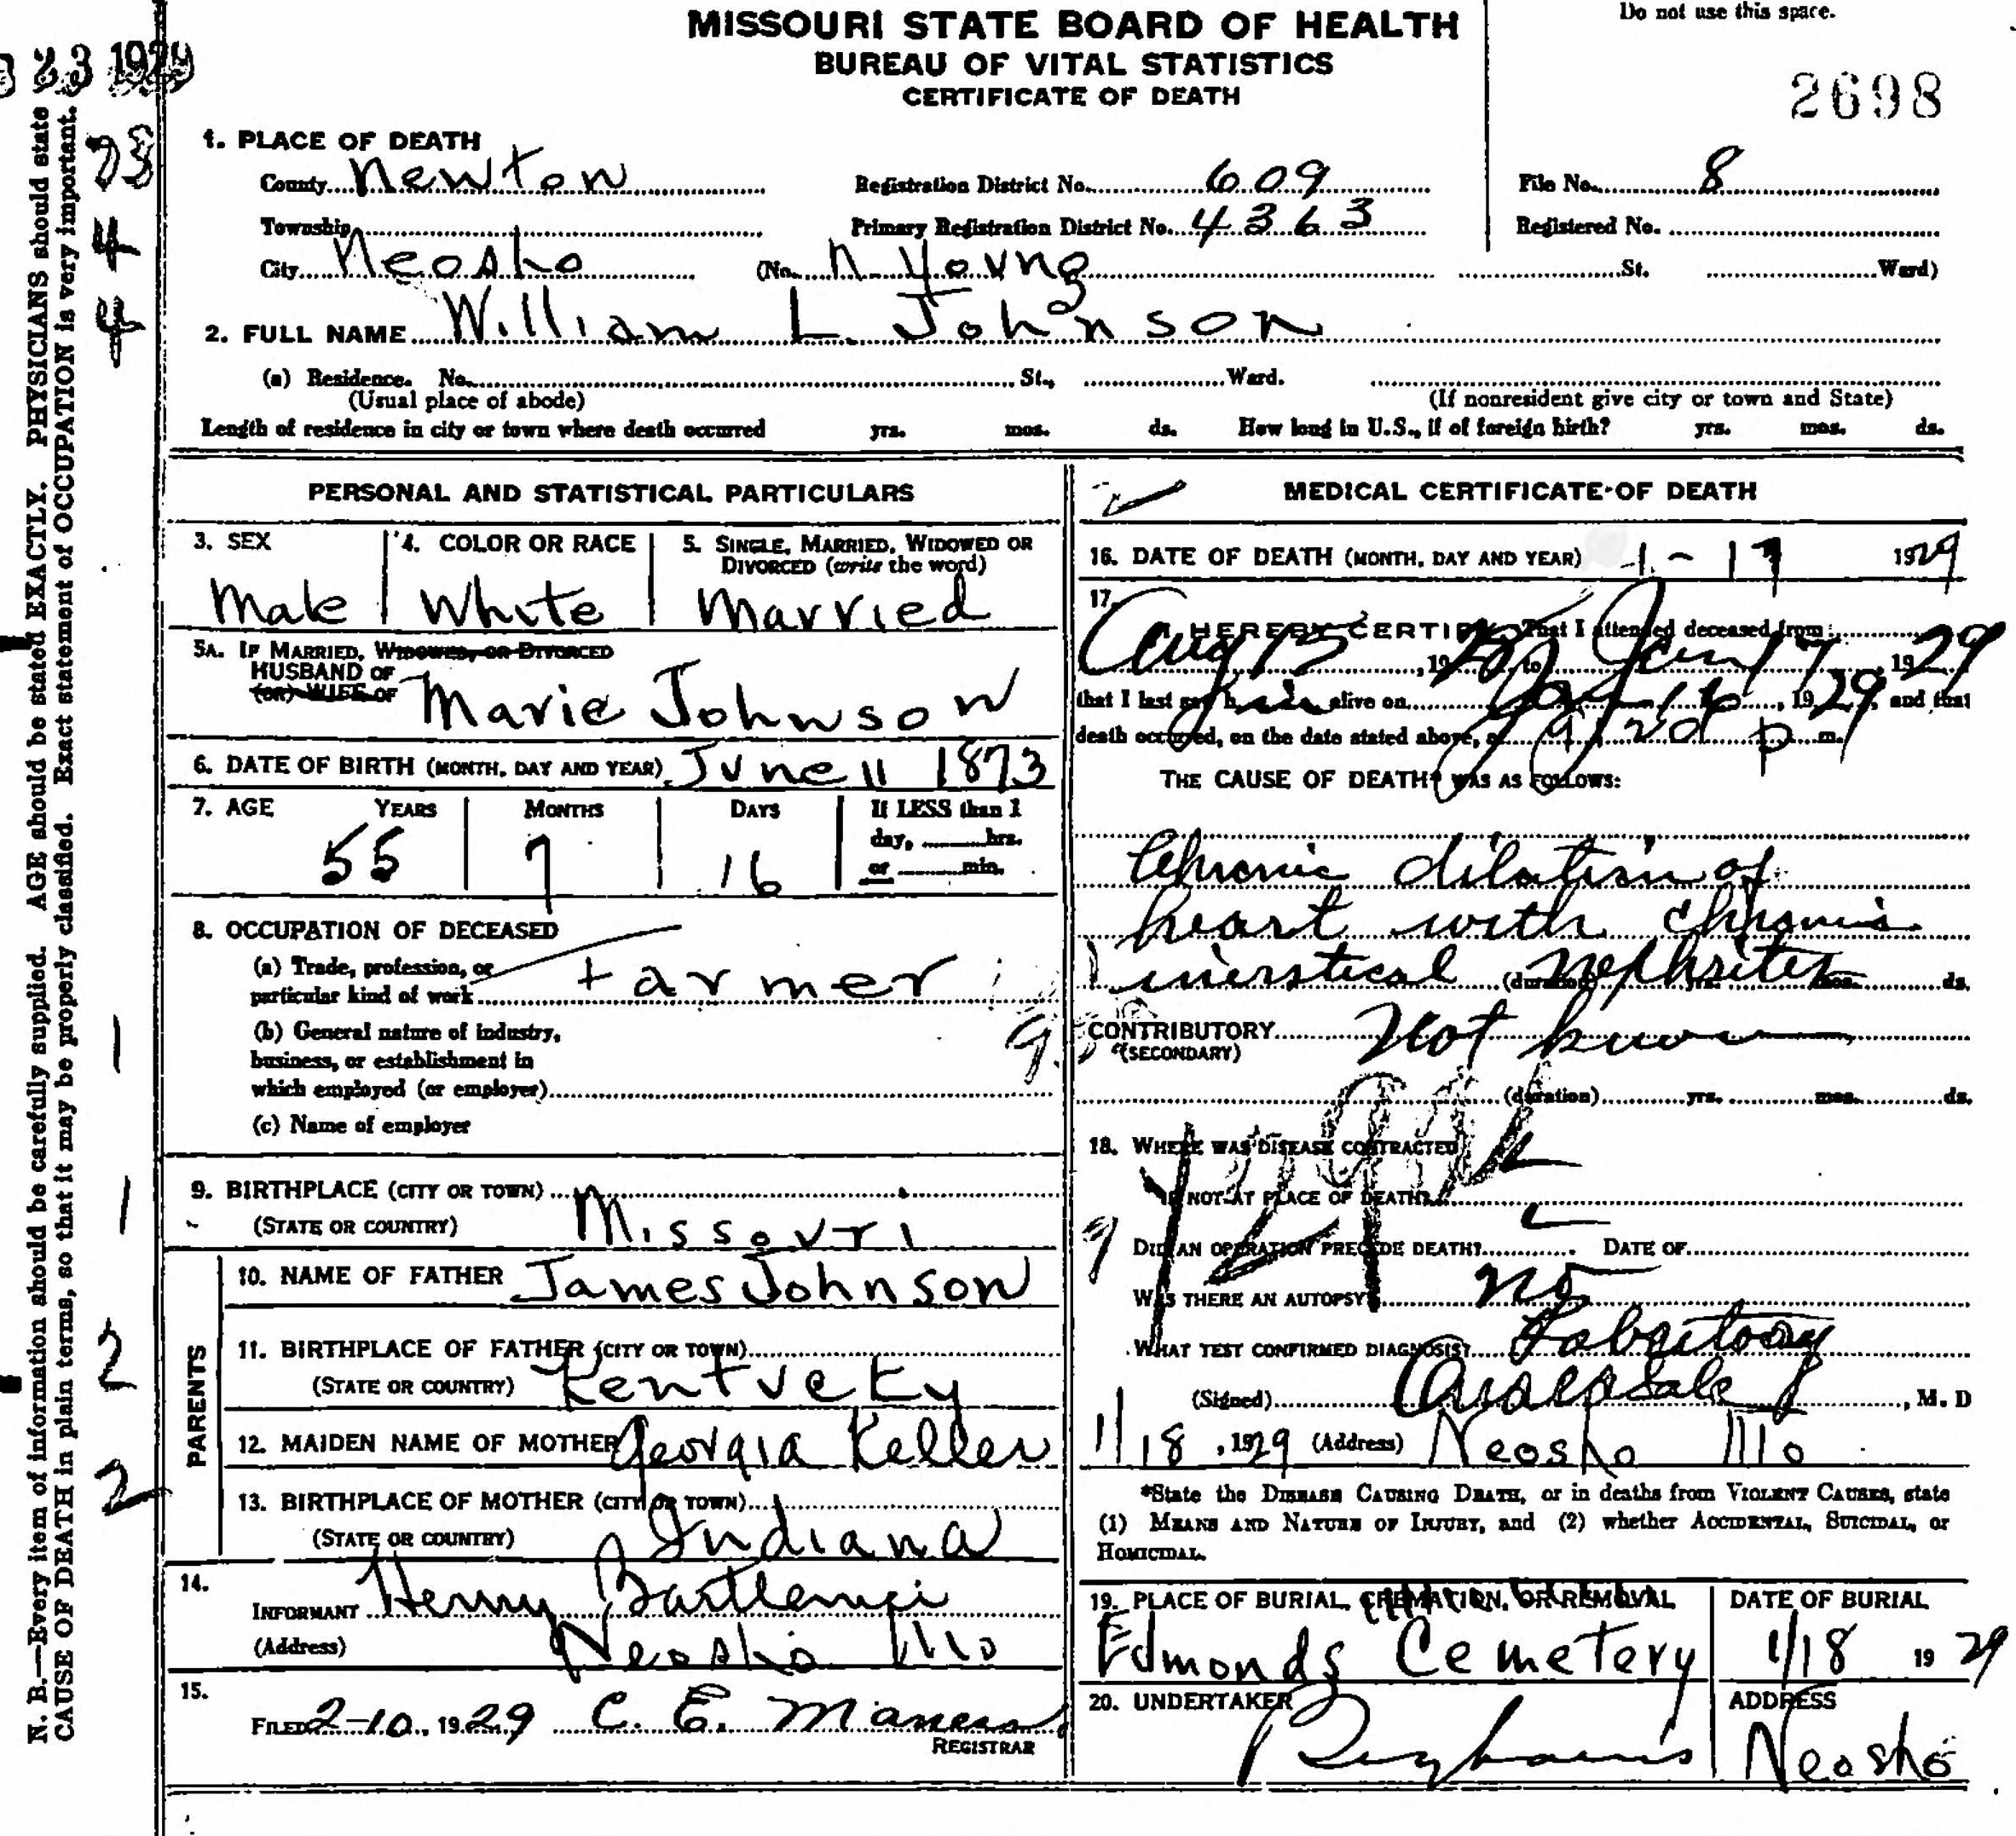 MISSOURI STATE BOARD OF HEALTH
BUREAU OF VITAL STATISTICS
CERTIFICATE OF DEATH
Do not use this space.
2698
23 1929
1. PLACE OF DEATH
County Newton Registration District No. 609 File No. 8
Township Primary Registration District No. 4363 Registered No.
City Neosho (No. N Young St. Ward)
2. FULL NAME William L. Johnson
(a) Residence. No. St., Ward.
(Usual place of abode) (If nonresident give city or town and State)
Length of residence in city or town where death occurred yrs. mos. ds. How long in U.S., if of foreign birth? yrs. mos. ds.
PERSONAL AND STATISTICAL PARTICULARS
3. SEX 4. COLOR OR RACE 5. SINGLE, MARRIED, WIDOWED OR
DIVORCED (write the word)
Male White Married
5A. IF MARRIED, WIDOWED, OR DIVORCED
HUSBAND OF
(OR) WIFE OF Marie Johnson
6. DATE OF BIRTH (MONTH, DAY AND YEAR) June 11 1873
7. AGE YEARS MONTHS DAYS If LESS than 1
day, hrs.
or min.
55 7 16
8. OCCUPATION OF DECEASED
(a) Trade, profession, or
particular kind of work farmer
(b) General nature of industry,
business, or establishment in
which employed (or employer)
(c) Name of employer
9. BIRTHPLACE (CITY OR TOWN)
(STATE OR COUNTRY) Missouri
PARENTS
10. NAME OF FATHER James Johnson
11. BIRTHPLACE OF FATHER (CITY OR TOWN)
(STATE OR COUNTRY) Kentucky
12. MAIDEN NAME OF MOTHER Georgia Keller
13. BIRTHPLACE OF MOTHER (CITY OR TOWN)
(STATE OR COUNTRY) Indiana
14.
INFORMANT Henry Bartlemei
(Address) Neosho Mo
15.
FILED 2-10, 1929 C. E. Maness
REGISTRAR
MEDICAL CERTIFICATE OF DEATH
16. DATE OF DEATH (MONTH, DAY AND YEAR) 1-17 1929
17.
I HEREBY CERTIFY, That I attended deceased from
Aug 15, 19 to Jan 17, 1929
that I last saw him alive on Jan 16, 1929, and that
death occurred, on the date stated above, at 9:20 p m.
THE CAUSE OF DEATH* WAS AS FOLLOWS:
Chronic dilation of
heart with chronic
inerstical nephrites
(duration) yrs. mos. ds.
CONTRIBUTORY Not known
(SECONDARY)
(duration) yrs. mos. ds.
18. WHERE WAS DISEASE CONTRACTED
IF NOT AT PLACE OF DEATH?
DID AN OPERATION PRECEDE DEATH? DATE OF
WAS THERE AN AUTOPSY? no
WHAT TEST CONFIRMED DIAGNOSIS?
(Signed) , M. D
1/18, 1929 (Address) Neosho Mo
*State the DISEASE CAUSING DEATH, or in deaths from VIOLENT CAUSES, state
(1) MEANS AND NATURE OF INJURY, and (2) whether ACCIDENTAL, SUICIDAL, or
HOMICIDAL.
19. PLACE OF BURIAL, CREMATION, OR REMOVAL DATE OF BURIAL
Edmonds Cemetery 1/18 1929
20. UNDERTAKER ADDRESS
Neosho
N. B.—Every item of information should be carefully supplied. AGE should be stated EXACTLY. PHYSICIANS should state
CAUSE OF DEATH in plain terms, so that it may be properly classified. Exact statement of OCCUPATION is very important.
4
4
1
1
2
2